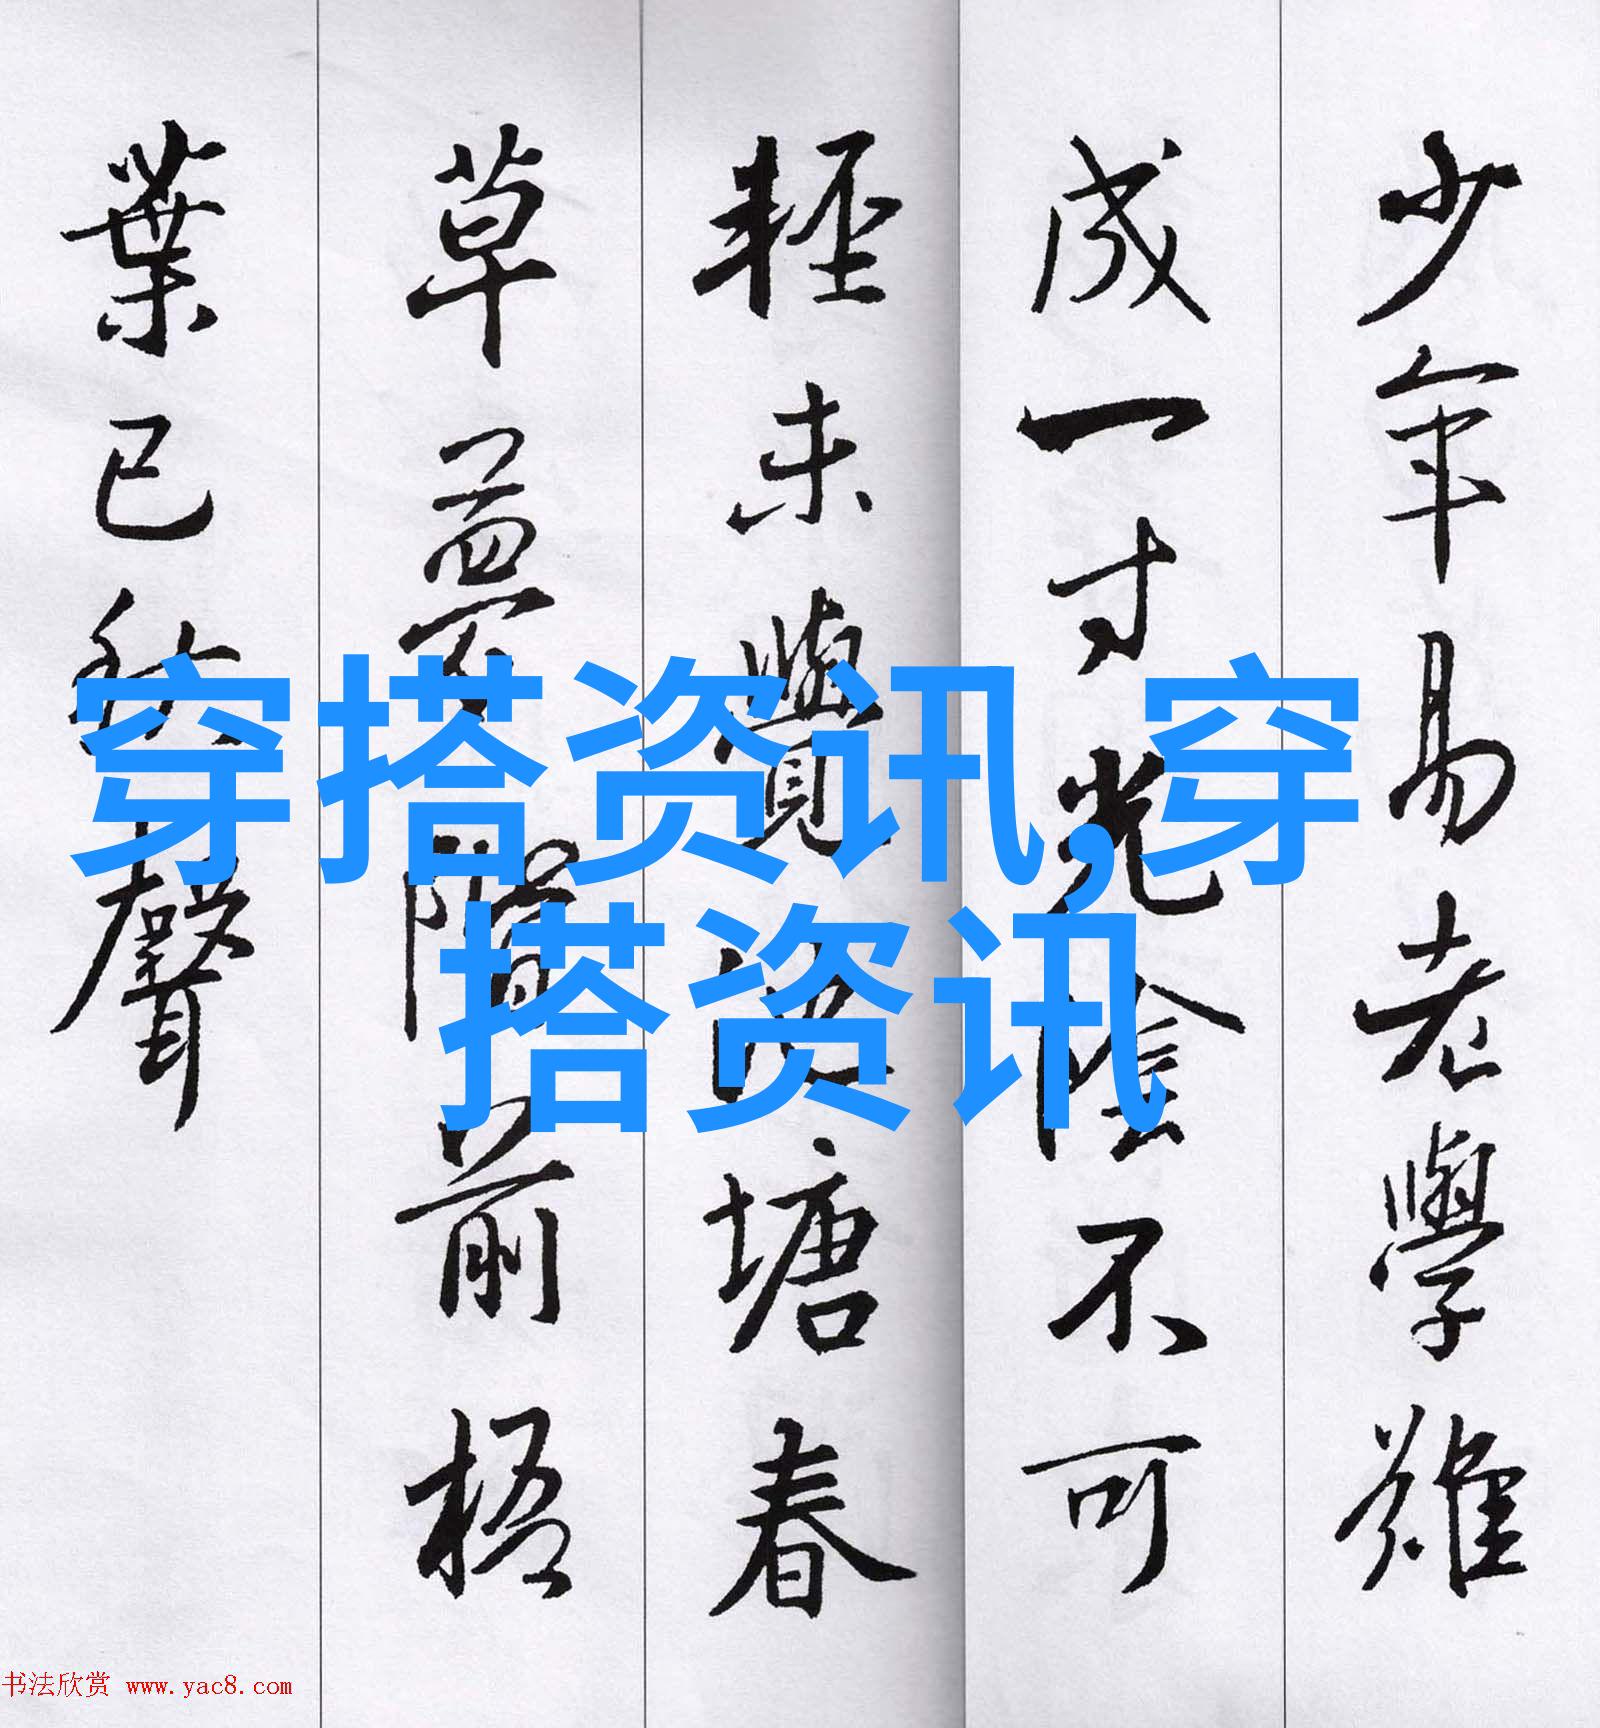 少年易老學難
成一寸光陰不可
輕未覺池塘春
草夢階前梧
葉已秋聲
穿搭资讯,穿
搭资讯
书法欣赏 www.yac8.com